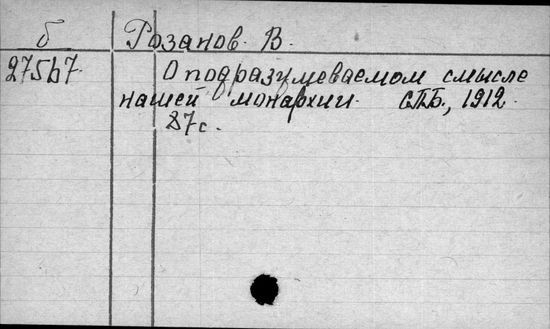 б Розанов. В.
27567. О подразумеваемом смысле
нашей монархии. СПБ., 1912.
87 с.